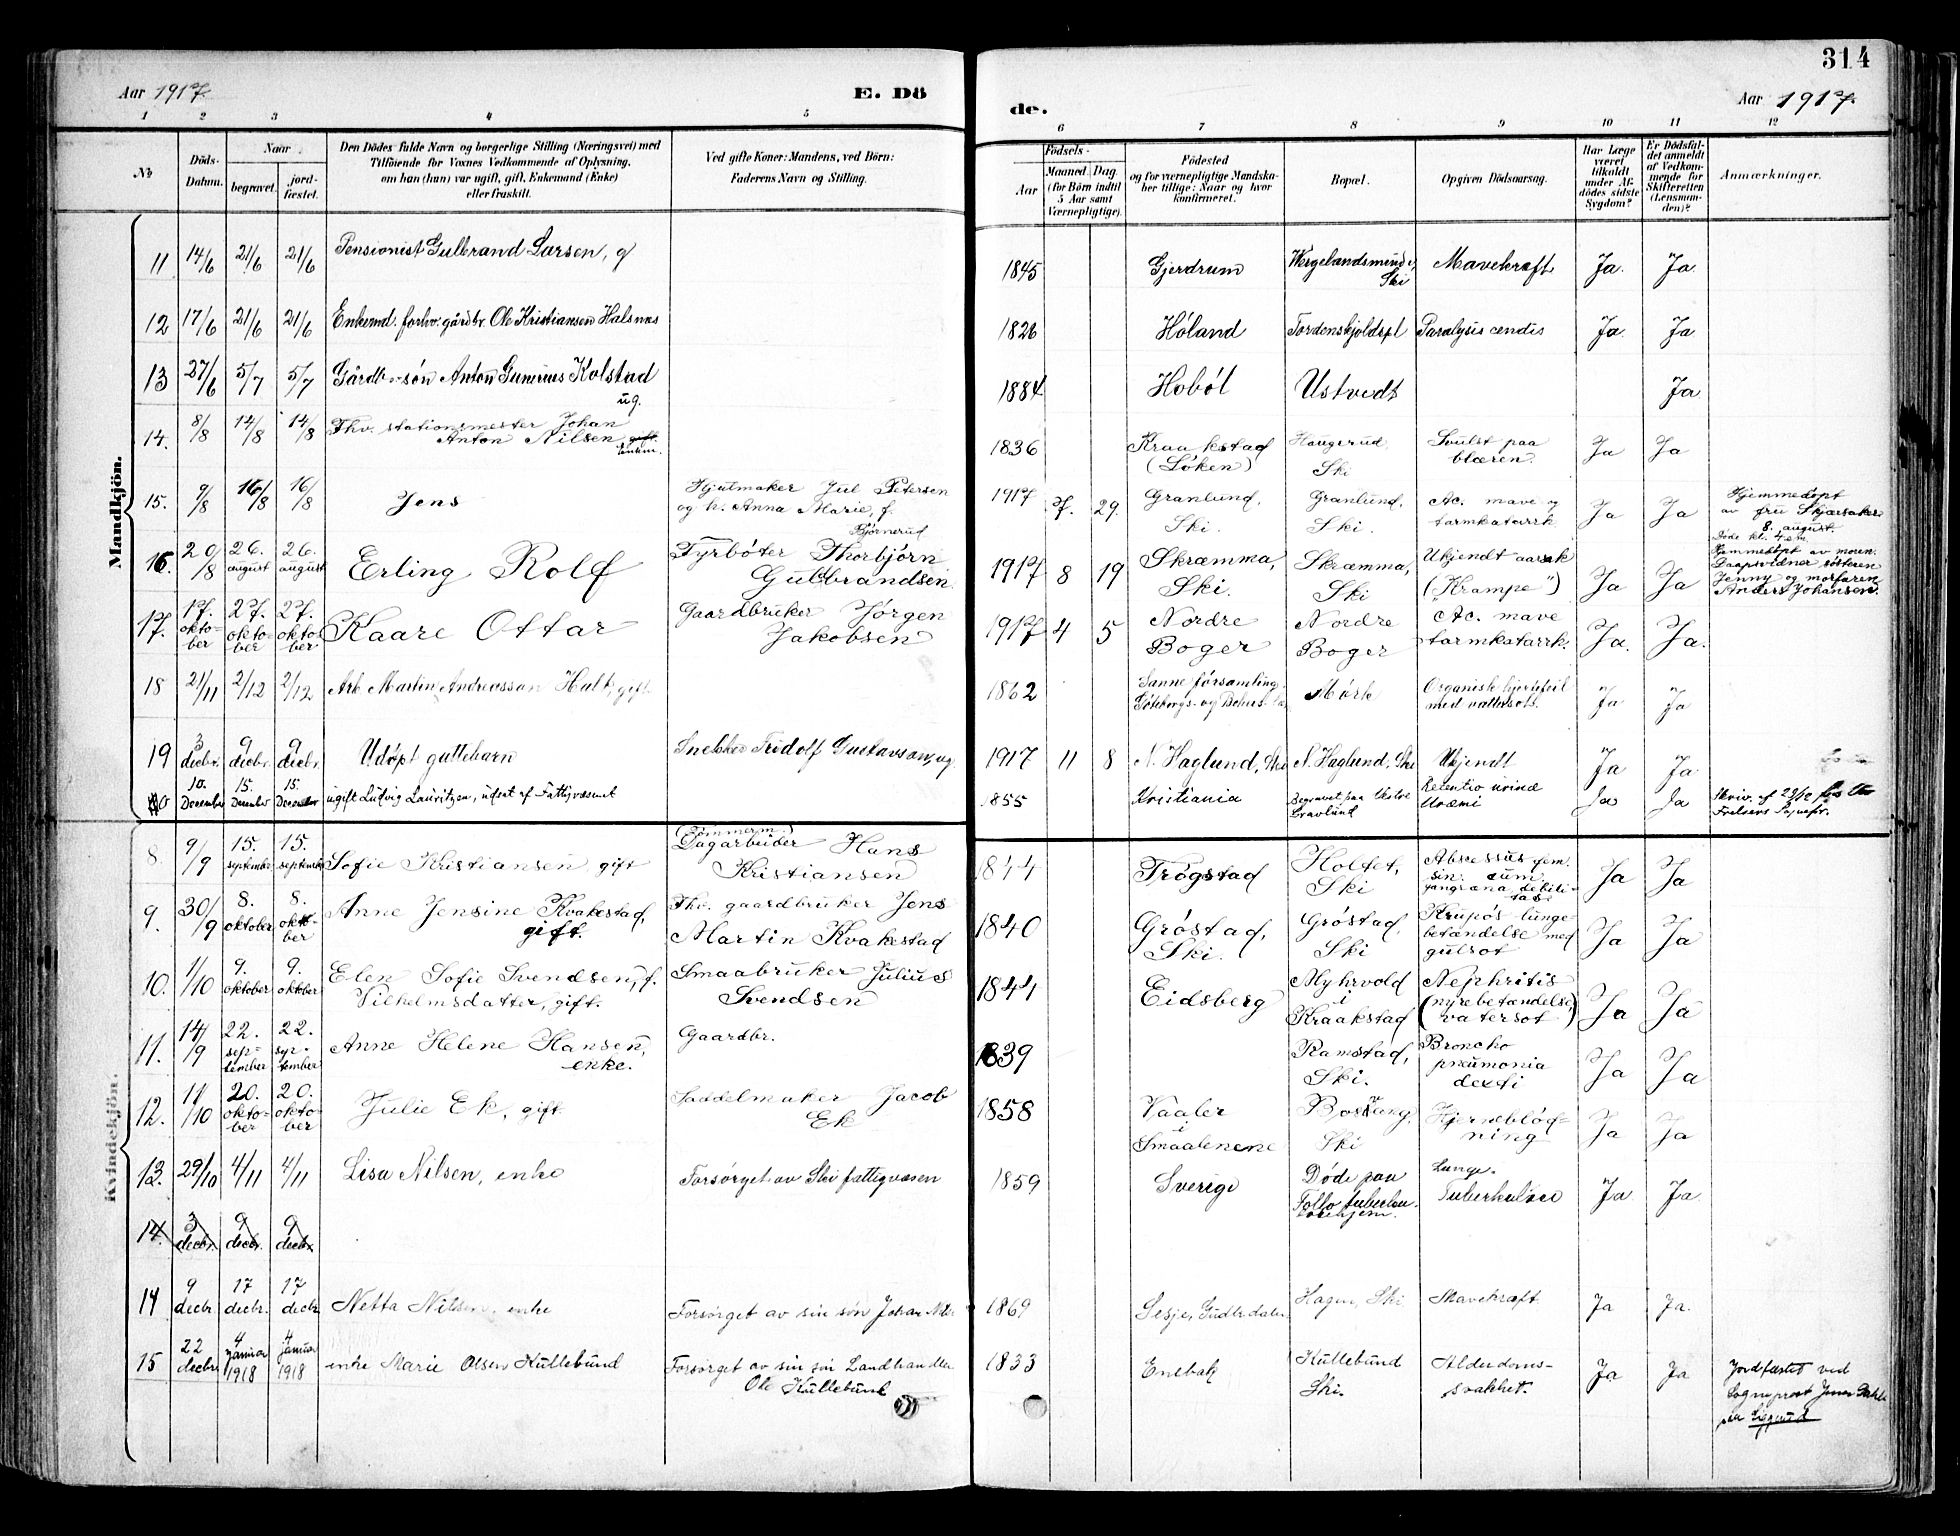 314
Aar 1917. E. Dö de. Aar 1917.
1 2 3 4 5 6 7 8 9 10 11 12
No
Döds-Datum.
Naar
begravet.
jordfæstet.
Den Dödes fulde Navn og borgerlige Stilling (Næringsvei) med
Tilföiende for Voxnes Vedkommende af Oplysning,
om han (hun) var ugift, gift, Enkemand (Enke)
eller fraskilt.
Ved gifte Koner: Mandens, ved Börn:
Faderens Navn og Stilling.
Födsels-
Aar
Maaned. Dag.
(for Börn indtil
5 Aar samt
Værnepligtige).
Födested
og for værnepligtige Mandskaber tillige: Naar og hvor
konfirmeret.
Bopæl.
Opgiven Dödsaarsag.
Har Læge været tilkaldt under Afdödes sidste Sygdom?
Er Dödsfaldet anmeldt af Vedkommende for Skifteretten (Lensmanden)?
Anmærkninger.
Mandkjön.
11 14/6 21/6 21/6 Pensionist Gulbrand Larsen, g 1845 Gjerdrum Wergelandsminde, Ski Mavekræft Ja. Ja
12 17/6 21/6 21/6 Enkemd. forhv. gårdbr. Ole Kristiansen Halsnæs 1826 Høland Tordenskjoldspl Paralysis cordis Ja. Ja
13 27/6 5/7 5/7 Gårdbr.søn Anton Gunerius Kolstad ug. 1884 Hobøl Ustvedt Ja
14. 8/8 14/8 14/8 Fhv. stationsmester Johan
Anton Nilsen, gift. Enkem. 1836 Kraakstad (Løken) Haugerud, Ski Svulst paa blæren. Ja Ja
15. 9/8 16/8 16/8 Jens Hjulmaker Jul Petersen
og h. Anna Marie, f. Bjørnerud 1917 7. 29. Granlund, Ski. Granlund, Ski. Ac. mave og tarmkatarrk Ja Ja Hjemmedøpt
av fru Skjærsaker
8. august.
Døde kl. 4 em.
16. 20/8 26. august 26. august Erling Rolf Fyrbøter Thorbjørn
Gulbrandsen. 1917 8 19 Skræmma, Ski. Skræmma, Ski Ukjendt aarsak ("Krampe") Ja Ja Hjemmedøpt av moren.
Daapsvidner søsteren
Jenny og morfaren
Anders Johansen.
17. 17. oktober 27. oktober 27. oktober Kaare Ottar Gaardbruker Jørgen
Jakobsen 1917 4 5 Nordre Boger Nordre Boger Ac. mave tarmkatarrk. Ja. Ja.
18 21/11 2/12 2/12 Arb. Martin Andreassen Hult, gift 1862 Sanne församling, Göteborgs- og Bohus- Mørk Organisk hjertefeil
med vattersot. Ja Ja
19 3 decbr. 9 decbr. 9 decbr. Udøpt guttebarn Snekker Fridolf Gustavson, ug. 1917 11 8 N. Haglund, Ski N. Haglund, Ski Ukjendt Ja Ja
10. December 15. December 15. December ugift Ludvig Lauritzen, udsat af Fattigvæsenet 1855 Kristiania Begravet paa Vestre Gravlund Retentio urinæ
Uræmi Ja Ja Skriv. af 23/12 fra Vor
Frelsers Sognepr.
Kvindekjön.
8. 9/9 15. september 15. september Sofie Kristiansen, gift (Tømmerm.)
Dagarbeider Hans
Kristiansen 1844 Trøgstad Holtet, Ski Abscessus fem.
sin. cum
gangræna debilitate Ja Ja
9. 30/9 8. oktober 8. oktober Anne Jensine Kvakestad,
gift. Fhv. gaardbruker Jens
Martin Kvakestad 1840 Grøstad, Ski. Grøstad, Ski Krupøs lungebetændelse med
gulsot Ja Ja
10. 1/10 9. oktober 9. oktober Elen Sofie Svendsen, f.
Vilhelmsdatter, gift. Smaabruker Julius
Svendsen 1844 Eidsberg Myhrvold i Kraakstad Nephritis
(nyrebetændelse,
vatersot) Ja Ja
11. 14/9 22. september 22. september Anne Helene Hansen,
enke. Gaardbr. 1839 Ramstad, Ski. Broncho
pneumonia
dexti Ja Ja
12. 11/10 20. oktober 20. oktober Julie Ek, gift. Saddelmaker Jacob
Ek 1858 Vaaler i Smaalenene Ski Hjerneblødning Ja Ja
13. 29/10 4/11 4/11 Lisa Nilsen, enke Forsørget av Ski fattigvæsen 1859 Sverige Døde paa
Follo tuberkulosehjem. Lunge-
Tuberkulose Ja Ja.
14. 3 decbr. 9 decbr. 9 decbr.
14 9 decbr. 17 decbr. 17 decbr Netta Nilsen, enke Forsørget av sin søn Johan Nils 1869 Lesje, Gudbrdalen Hagen, Ski Mavekræft Ja Ja.
15 22 decbr. 4 januar 1918 4 januar 1918 enke Marie Olsen Kullebund Forsørget av sin søn Landhandler
Ole Kullebund 1833 Enebak Kullebund Ski. Alderdomssvakhet. Ja Ja Jordfæstet ved
Sogneprest